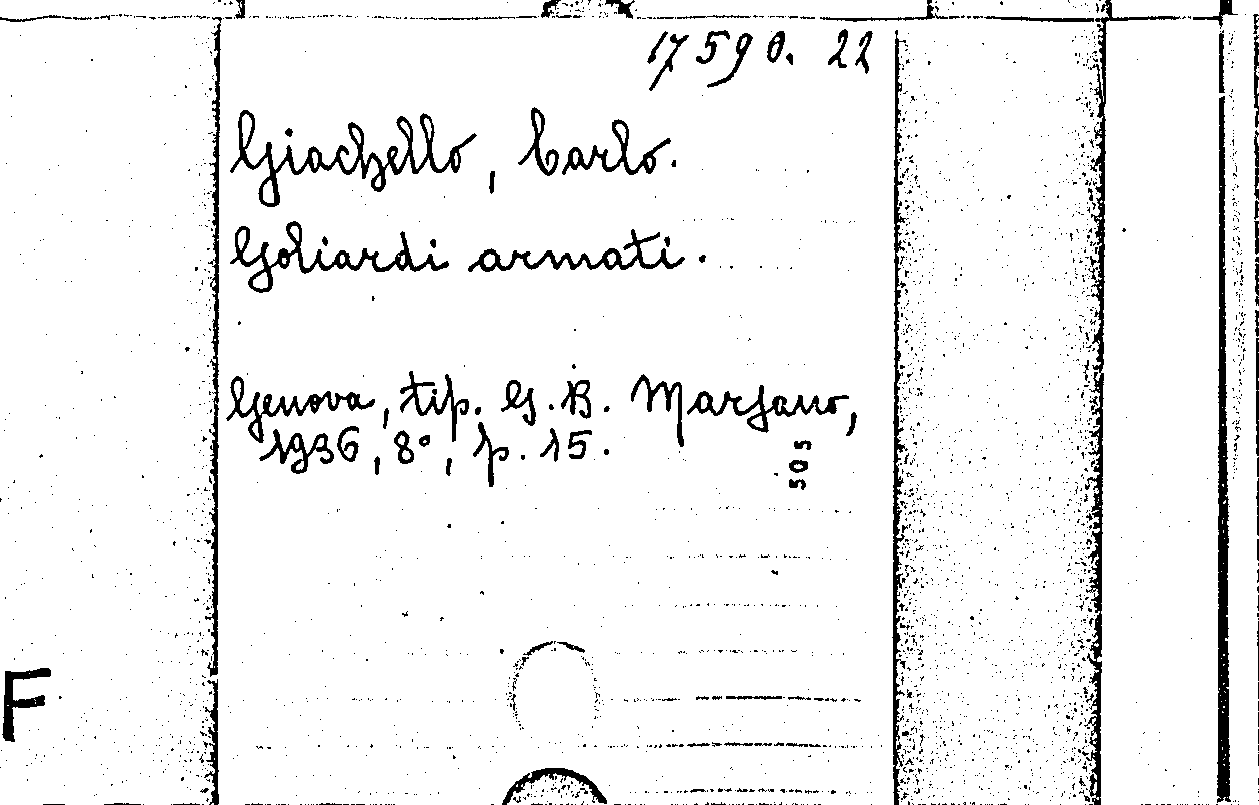 17590. 22
Giachello, Carlo.
Goliardi armati.
Genova, tip. G. B. Marsano,
1936, 8°, p. 15.
505
F